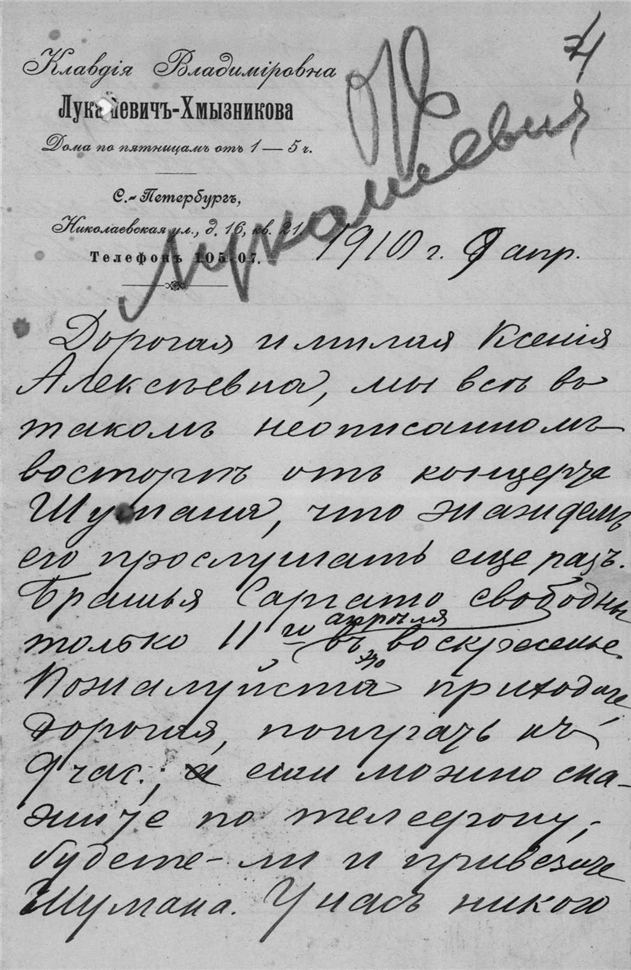 4
Клавдія Владиміровна
Лукашевичъ-Хмызникова
Дома по пятницамъ отъ 1 — 5 ч.
С.-Петербургъ,
Николаевская ул., д. 16, кв. 21
Телефонъ 105-07.
Лукашевич
1910 г. 9 апр.
Дорогая и милая Ксенія
Алексѣевна, мы всѣ въ
такомъ неописанномъ
восторгѣ отъ концерта
Шумана, что жаждемъ
его прослушать еще разъ.
Братья Саргато свободны
апрѣля
только 11го въ воскресенье.
Пожалуйста приходите,
дорогая, поиграть къ
9 час.; и если можно ска-
жите по телефону,
будете-ли и привезите
Шумана. У насъ никого